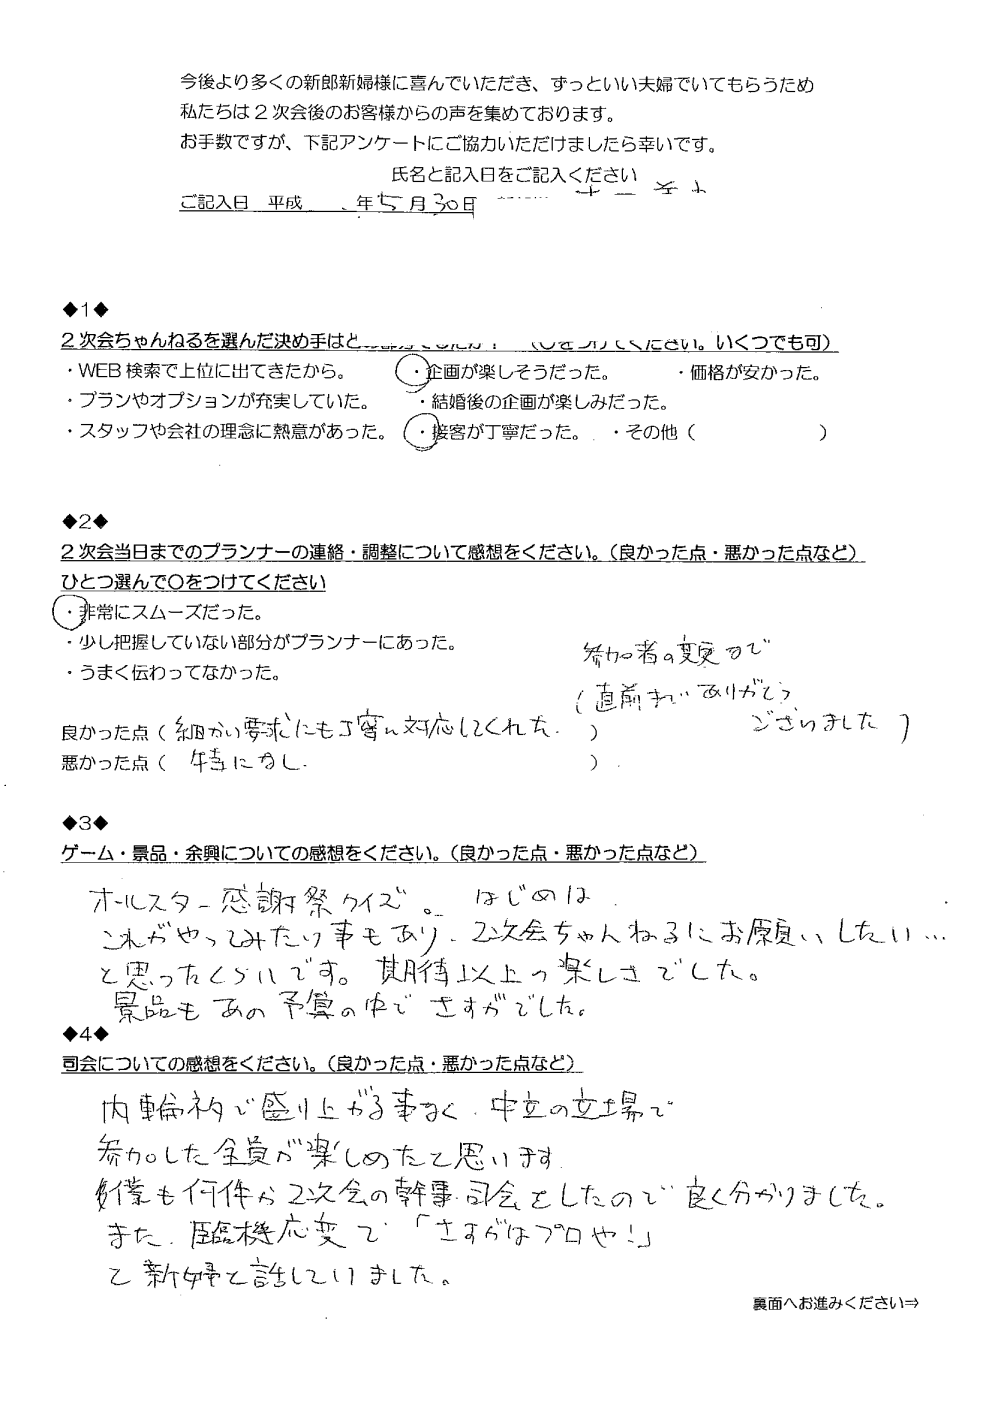 今後より多くの新郎新婦様に喜んでいただき、ずっといい夫婦でいてもらうため
私たちは2次会後のお客様からの声を集めております。
お手数ですが、下記アンケートにご協力いただけましたら幸いです。
氏名と記入日をご記入ください
ご記入日 平成 年5月30日
◆1◆
2次会ちゃんねるを選んだ決め手はど いくつでも可)
・WEB検索で上位に出てきたから。 ・企画が楽しそうだった。 ・価格が安かった。
・プランやオプションが充実していた。 ・結婚後の企画が楽しみだった。
・スタッフや会社の理念に熱意があった。 ・接客が丁寧だった。 ・その他( )
◆2◆
2次会当日までのプランナーの連絡・調整について感想をください。(良かった点・悪かった点など)
ひとつ選んで〇をつけてください
・非常にスムーズだった。
・少し把握していない部分がプランナーにあった。
・うまく伝わってなかった。
参加者の変更まで
(直前までありがとう
ございました)
良かった点(細かい要求にも丁寧に対応してくれた. )
悪かった点( 特になし. )
◆3◆
ゲーム・景品・余興についての感想をください。(良かった点・悪かった点など)
オールスター感謝祭クイズ。 はじめは
これがやってみたい事もあり、2次会ちゃんねるにお願いしたい…
と思ったくらいです。期待以上の楽しさでした。
景品もあの予算の中でさすがでした。
◆4◆
司会についての感想をください。(良かった点・悪かった点など)
内輪ネタで盛り上がる事なく、中立の立場で
参加した全員が楽しめたと思います
も何件か2次会の幹事、司会をしたので良く分かりました。
また、臨機応変で「さすがはプロや!」
と新婦と話していました。
裏面へお進みください⇒